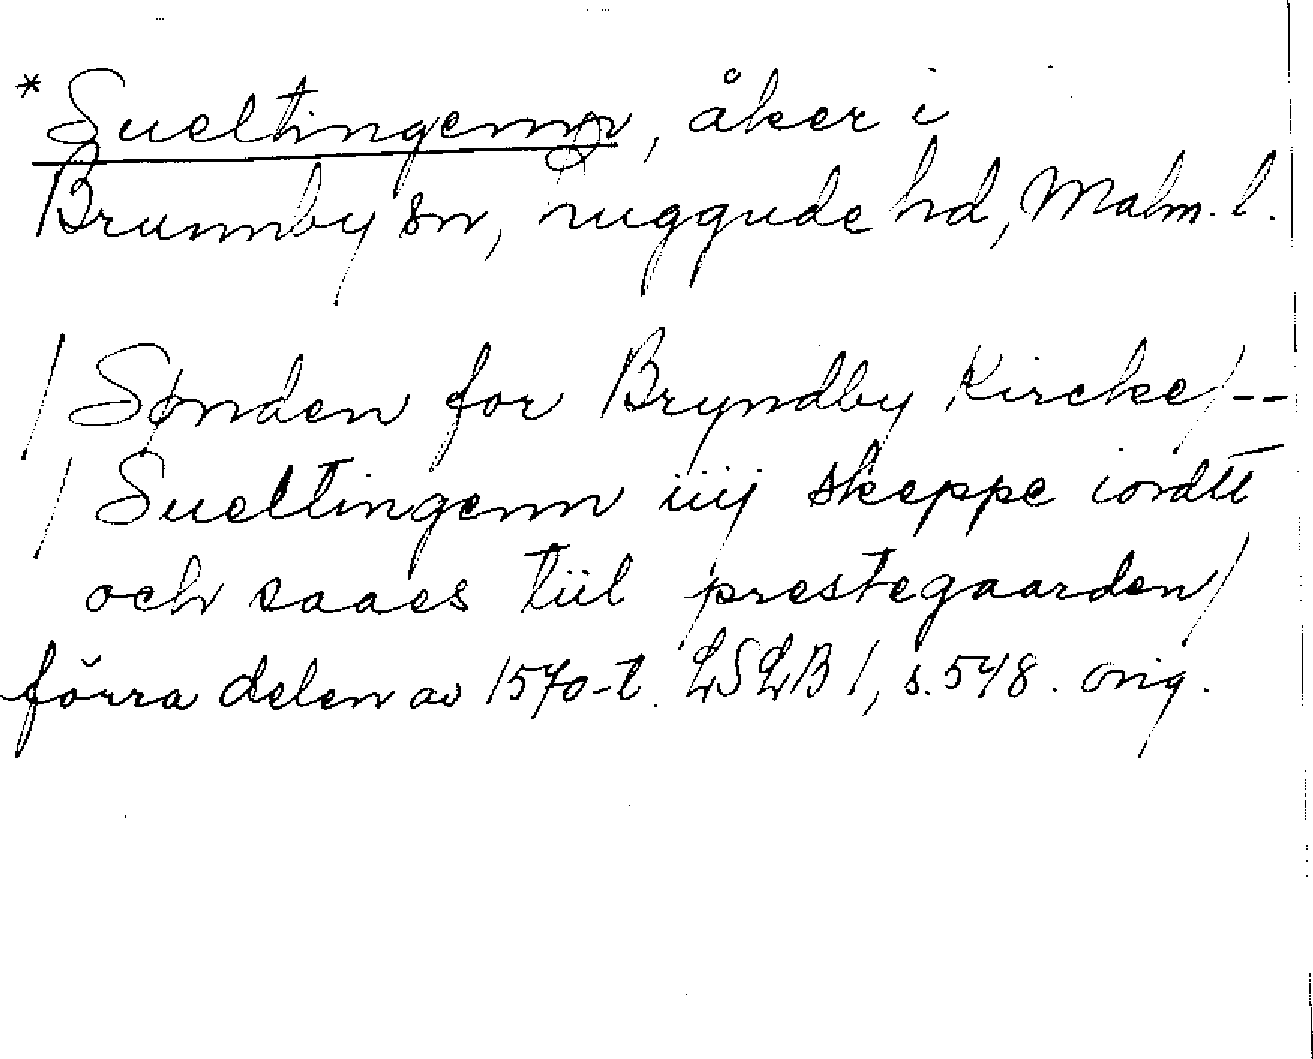 *Sueltingenn, åker i
Brunnby sn, Luggude hd, Malm. l.
/Sønden for Bryndby Kircke/--
/Sueltingenn iiij skeppe iordtt
och saaes tiil prestegaarden/
förra delen av 1570-t. LSLB 1, s. 548. orig.